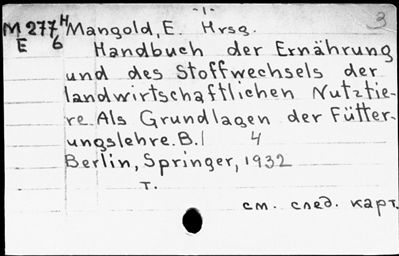 -1-
3
M 277 H Mangold, E. Hrsg.
E 6 Handbuch der Ernährung
und des Stoffwechsels der
landwirtschaftlichen Nutztie-
re. Als Grundlagen der Fütter-
ungslehre. B./ 4
Berlin, Springer, 1932
т.
см. след. карт.